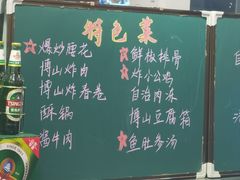 特色菜
☆爆炒腰花
博山炸肉
博山炸春卷
酥锅
酱牛肉
☆鲜椒排骨
☆炸小公鸡
自治肉冻
博山豆腐箱
☆鱼肚参汤
TSINGTAO